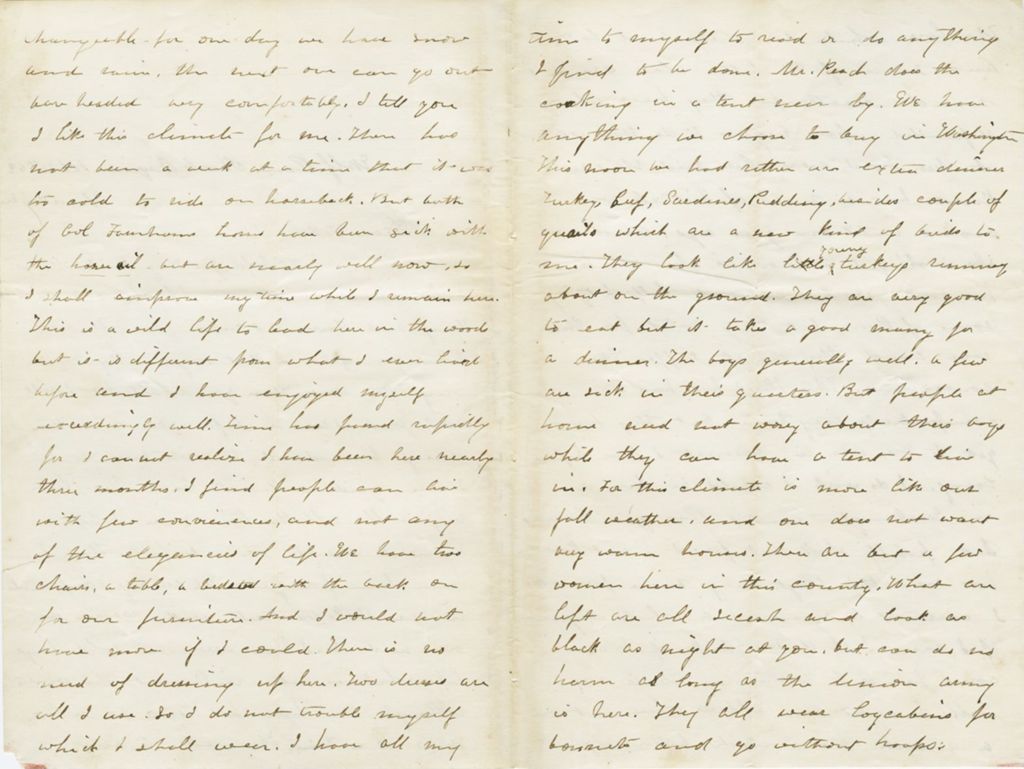 changeable for one day we have snow
and rain, the next one can go out
bare headed very comfortably. I tell you
I like this climate for me. There has
not been a week at a time that it was
too cold to ride on horseback. But both
of Col Farnhams horses have been sick with
the horseail but are nearly well now, so
I shall improve my time while I remain here.
This is a wild life to lead here in the woods
but is is different from what I ever lived
before and I have enjoyed myself
exceedingly well. Time has passed rapidly
for I cannot realize I have been here nearly
three months. I find people can live
with few conviences, and not any
of the elegancies of life. We have two
chairs, a table, a with the back on
for our furniture. And I would not
have more if I could. There is no
need of dressing up here. Two dresses are
all I use. So I do not trouble myself
which I shall wear. I have all my
time to myself to read or do anything
I find to be done. Mr. Peach does the
cooking in a tent near by. We have
anything we choose to buy in Washington
This noon we had rather an extra dinner
Turkey, Beef, Sardines, Pudding, besides couple of
quails which are a new kind of birds to
me. They look like little young turkeys running
about on the ground. They are very good
to eat but it takes a good many for
a dinner. The boys generally, well. a few
are sick in their quarters. But people at
home need not worry about their boys
while they can have a tent to live
in. For this climate is more like our
fall weather. and one does not want
any warm houses. There are but a few
women here in this county. What are
left are all secesh and look as
black as night at you. but can do no
harm as long as the Union army
is here. They all wear logcabins for
bonnets and go without hoops.